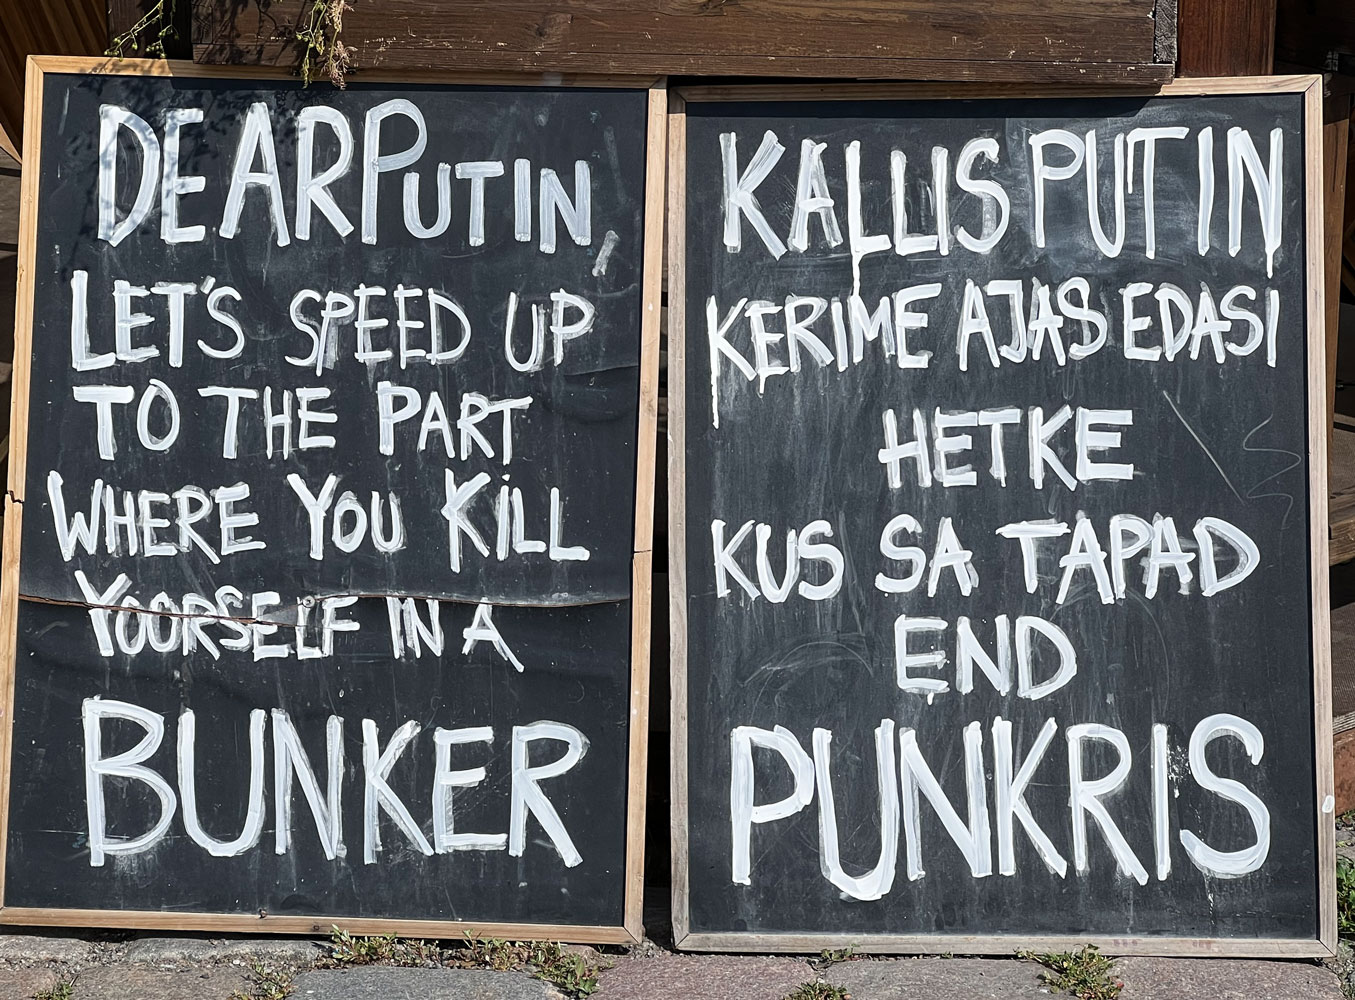 DEAR PUTIN,
LET'S SPEED UP
TO THE PART
WHERE YOU KILL
YOORSELF IN A
BUNKER
KALLIS PUTIN
KERIME AJAS EDASI
HETKE
KUS SA TAPAD
END
PUNKRIS